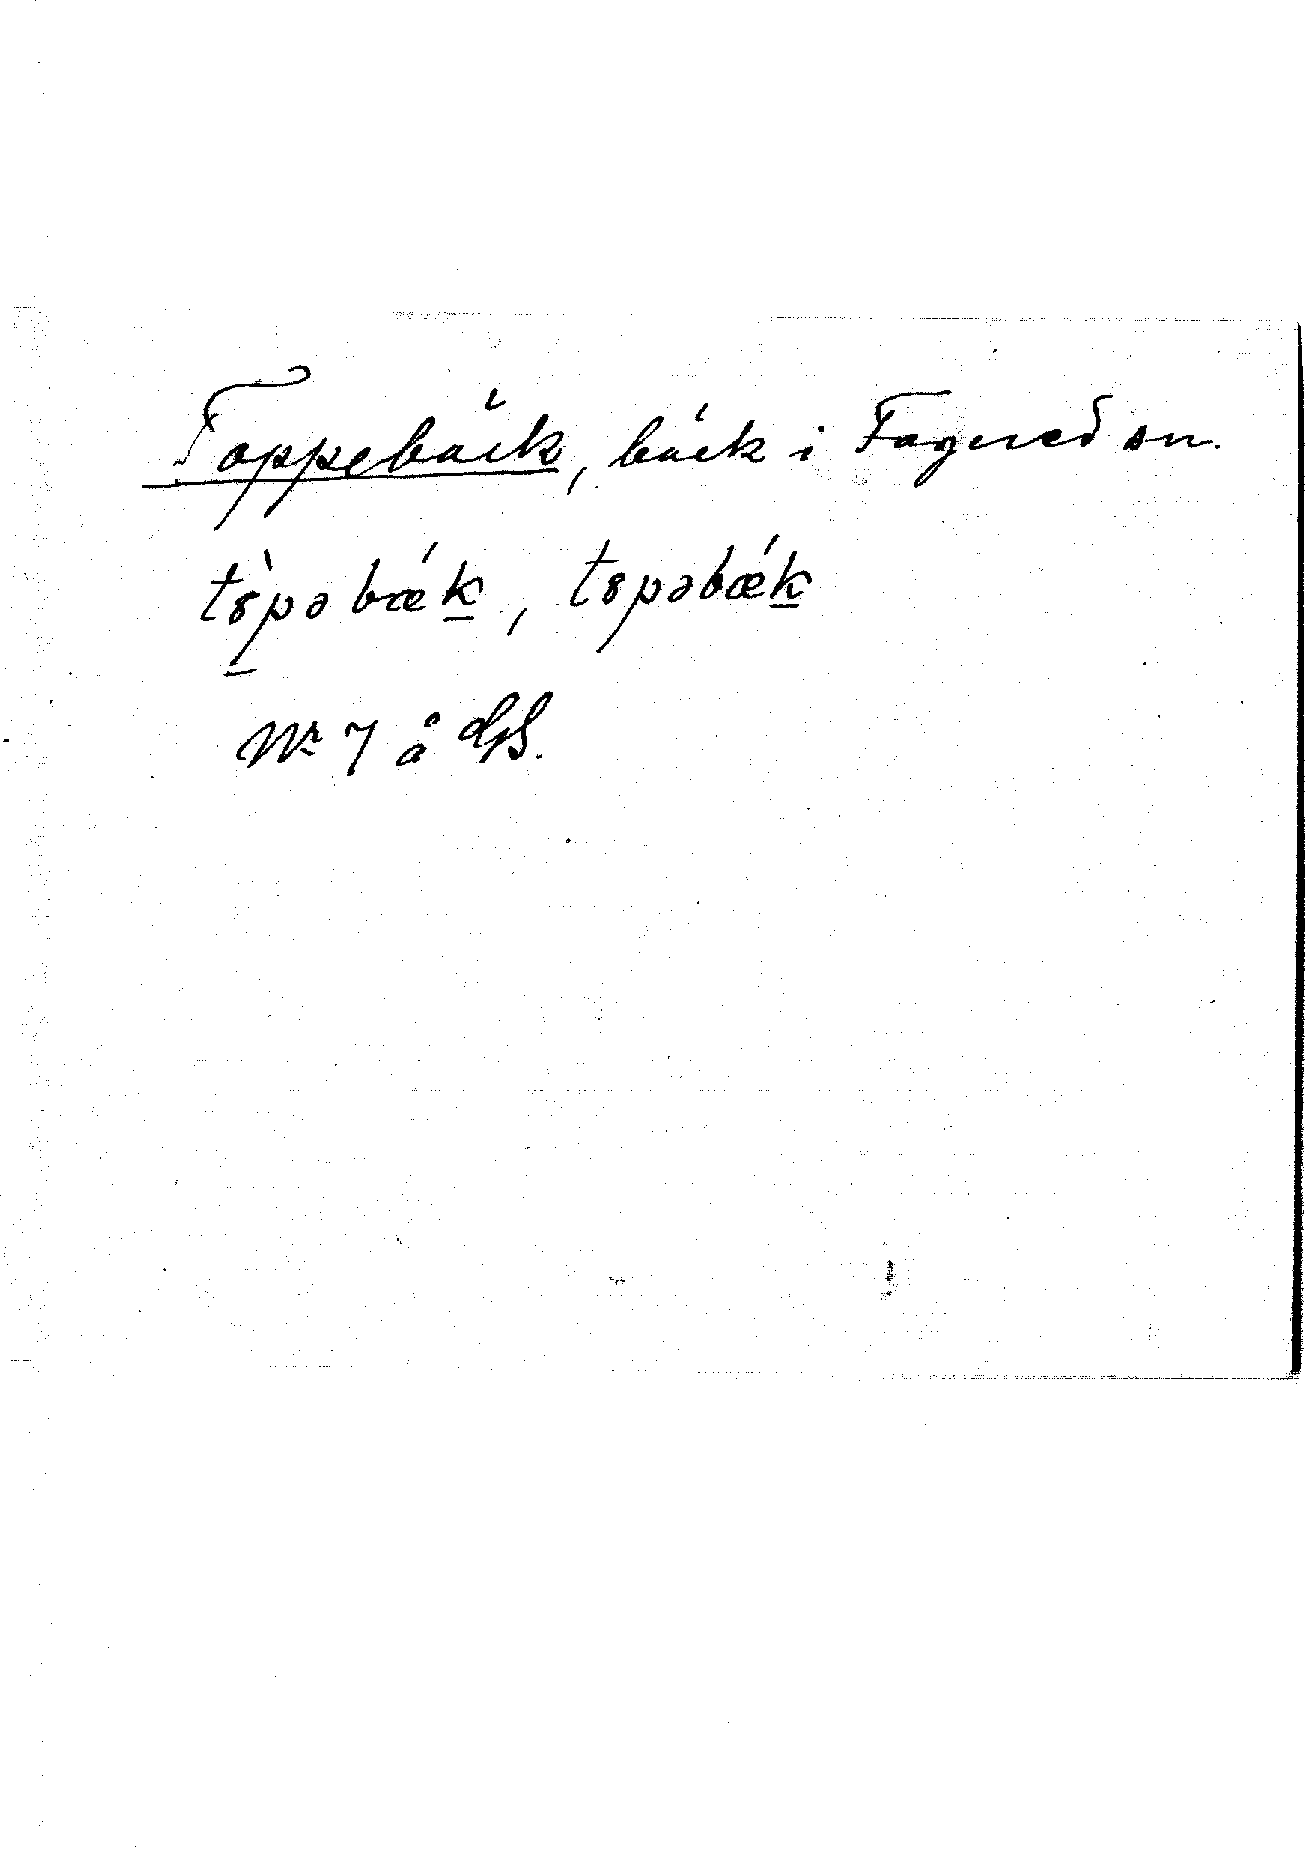 Toppebäck, bäck i Fagered sn.
tȣ̀pəbǽk, tȣpəbǽk
Nr 7 å GS.